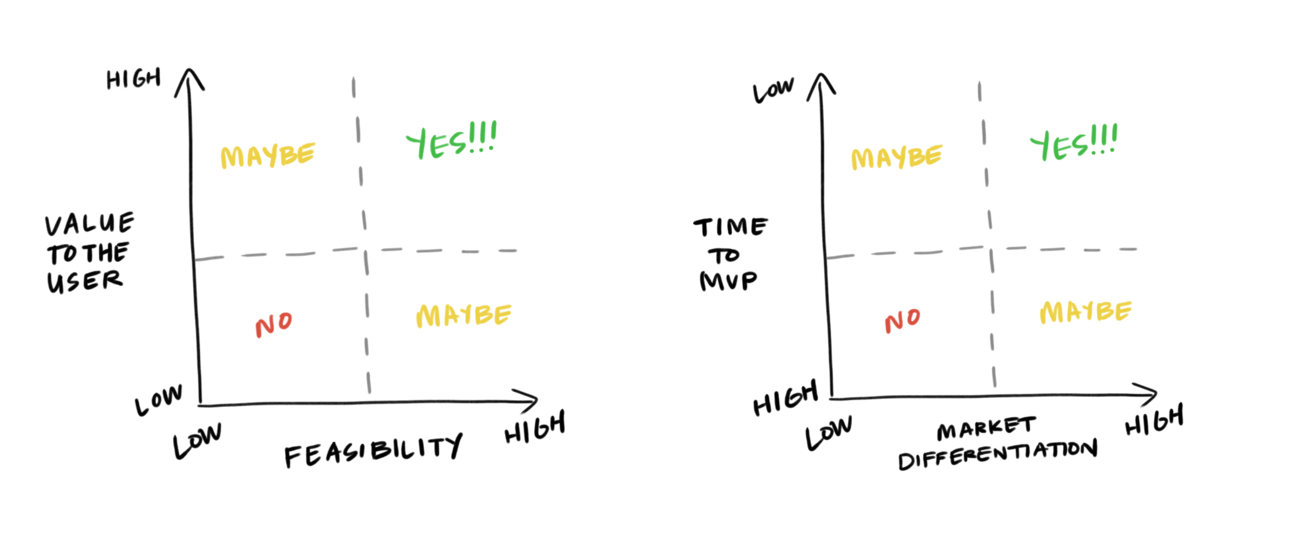 HIGH
MAYBE
YES!!!
VALUE
TO THE
USER
NO
MAYBE
LOW
LOW
FEASIBILITY
HIGH
LOW
MAYBE
YES!!!
TIME
TO
MVP
NO
MAYBE
HIGH
LOW
MARKET
DIFFERENTIATION
HIGH